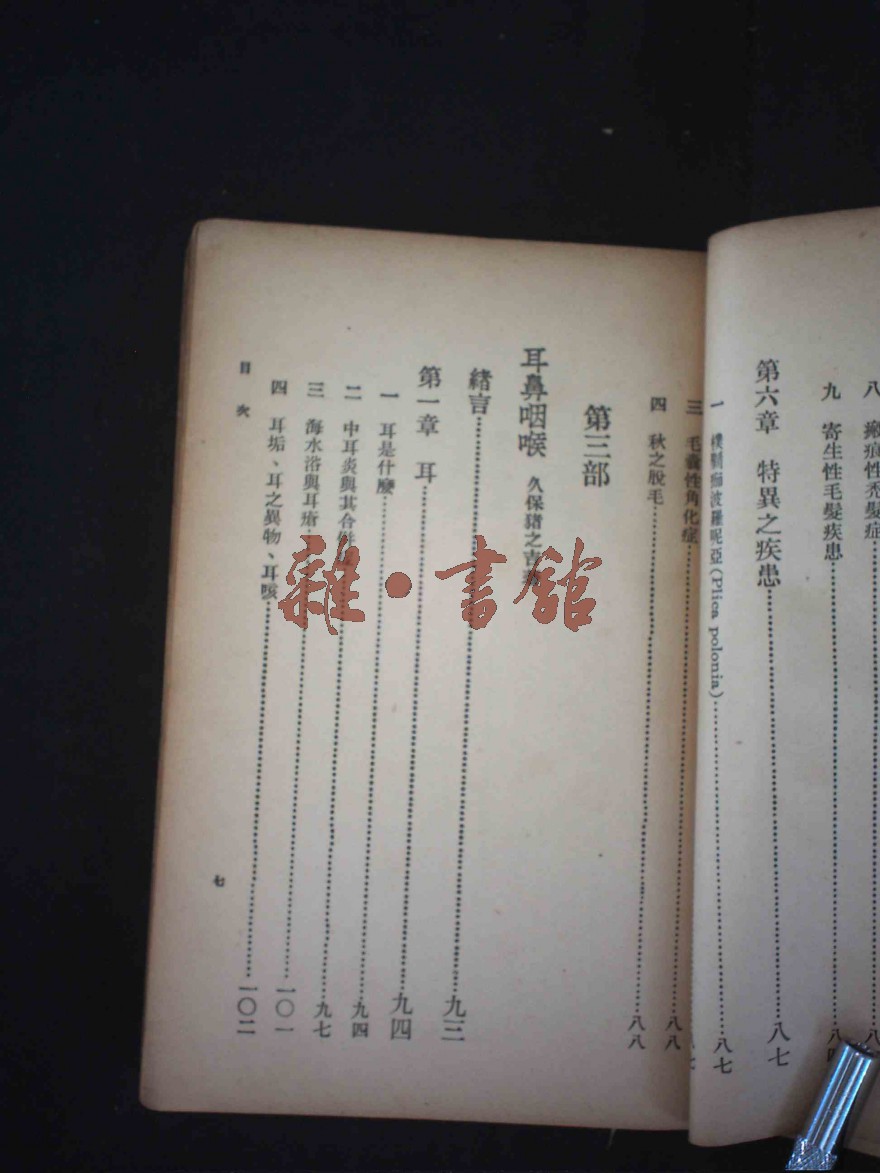 八　瘢痕性禿髮症
九　寄生性毛髮疾患……八
第六章　特異之疾患……八七
一　波羅呢亞(Plica polonia)……八七
三　毛囊性角化症……八八
四　秋之脫毛……八八
第三部
耳鼻咽喉　久保猪之吉
緒言……九三
第一章　耳……九四
一　耳是什麼……九四
二　中耳炎與其合併……九七
三　海水浴與耳……一〇一
四　耳垢、耳之異物、耳咳……一〇二
目次
七
雜·書館